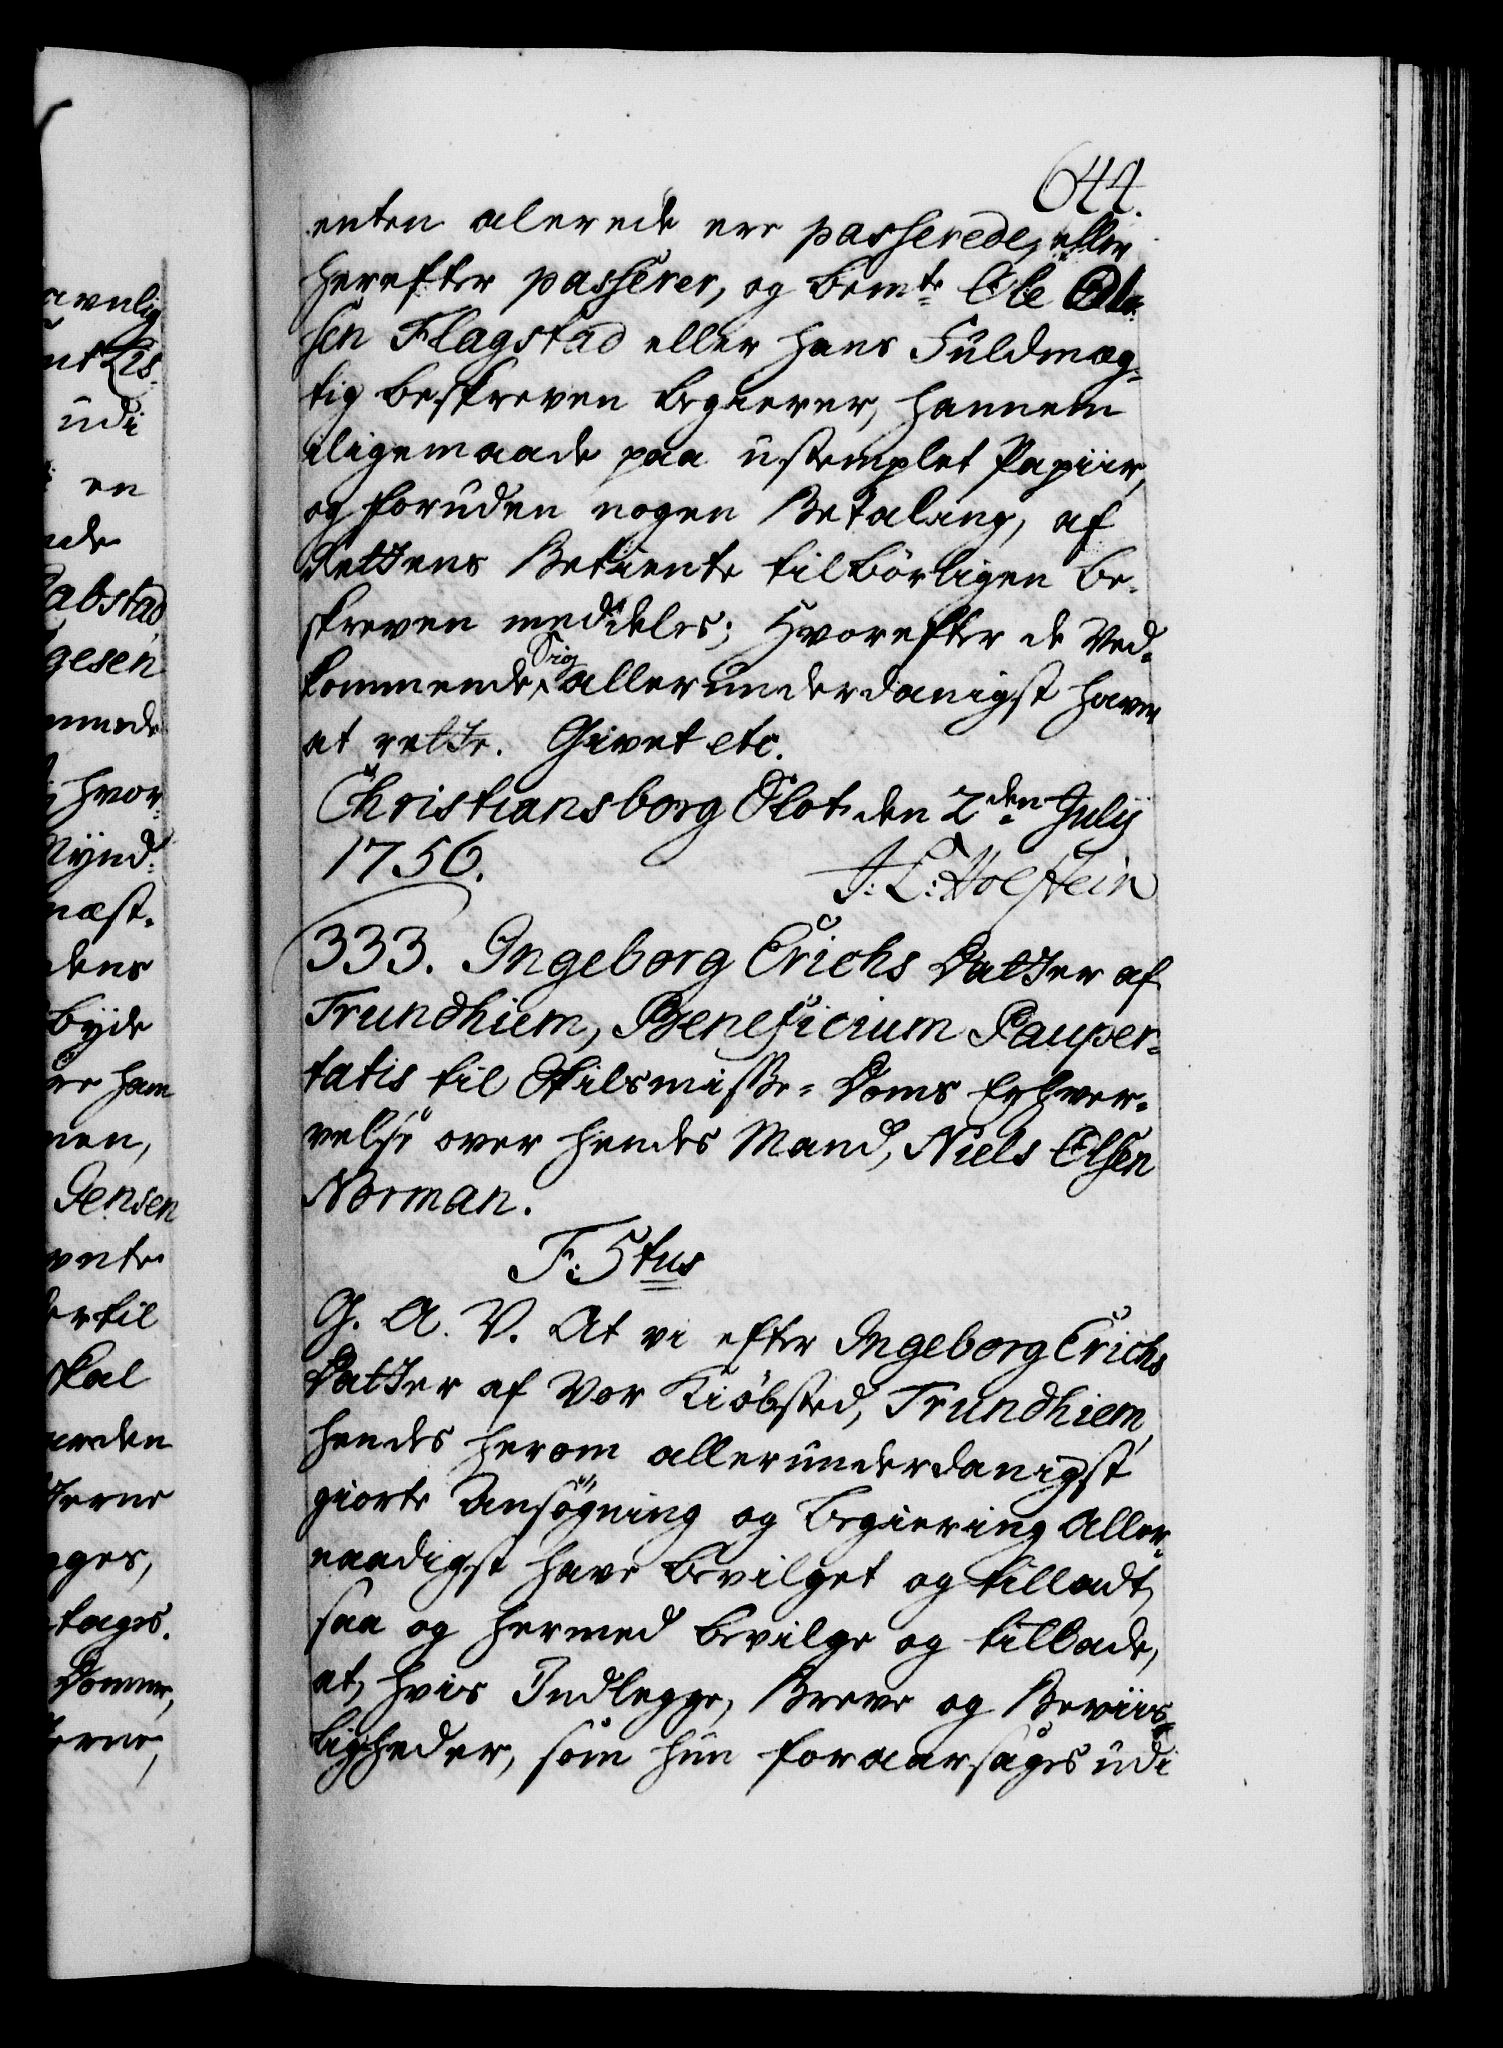 644.
enten alerede ere passerede, eller
herefter passerer, og bemte Ole Ole-
sen Flagstad eller hans Fuldmæg-
tig beskreven begierer, hannem
iligemaade paa ustemplet Papiir,
og foruden nogen Betaling, af
Rettens Betiente tilbörligen be-
skreven meddeles; Hvorefter de Ved-
kommende Sig allerunderdanigst haver
at rette. Givet etc.
Christiansborg Slot den 2den July
1756.
J: L: Holstein
333. Ingeborg Erichs Datter af
Trundhiem, Beneficium Pauper-
tatis til Skilsmisse-Doms Erhver-
velse over hendes Mand, Niels Olsen
Norman.
F: 5tus
G. A. V. At vi efter Ingeborg Erichs
Datter af Vor Kiöbsted, Trundhiem,
hendes herom allerunderdanigst
giorte Ansögning og begiering Aller-
naadigst have bevilget og tilladt,
saa og hermed bevilge og tillade,
at, hvis Indlegge, Breve og Beviis-
ligheder, som hun foraarsages udi
avnlig
udi
en
abstad,
gesen
hvor-
Nynd-
næst-
dens
byde
ham
Jensen
dertil
skal
terne
tages.
Domme,